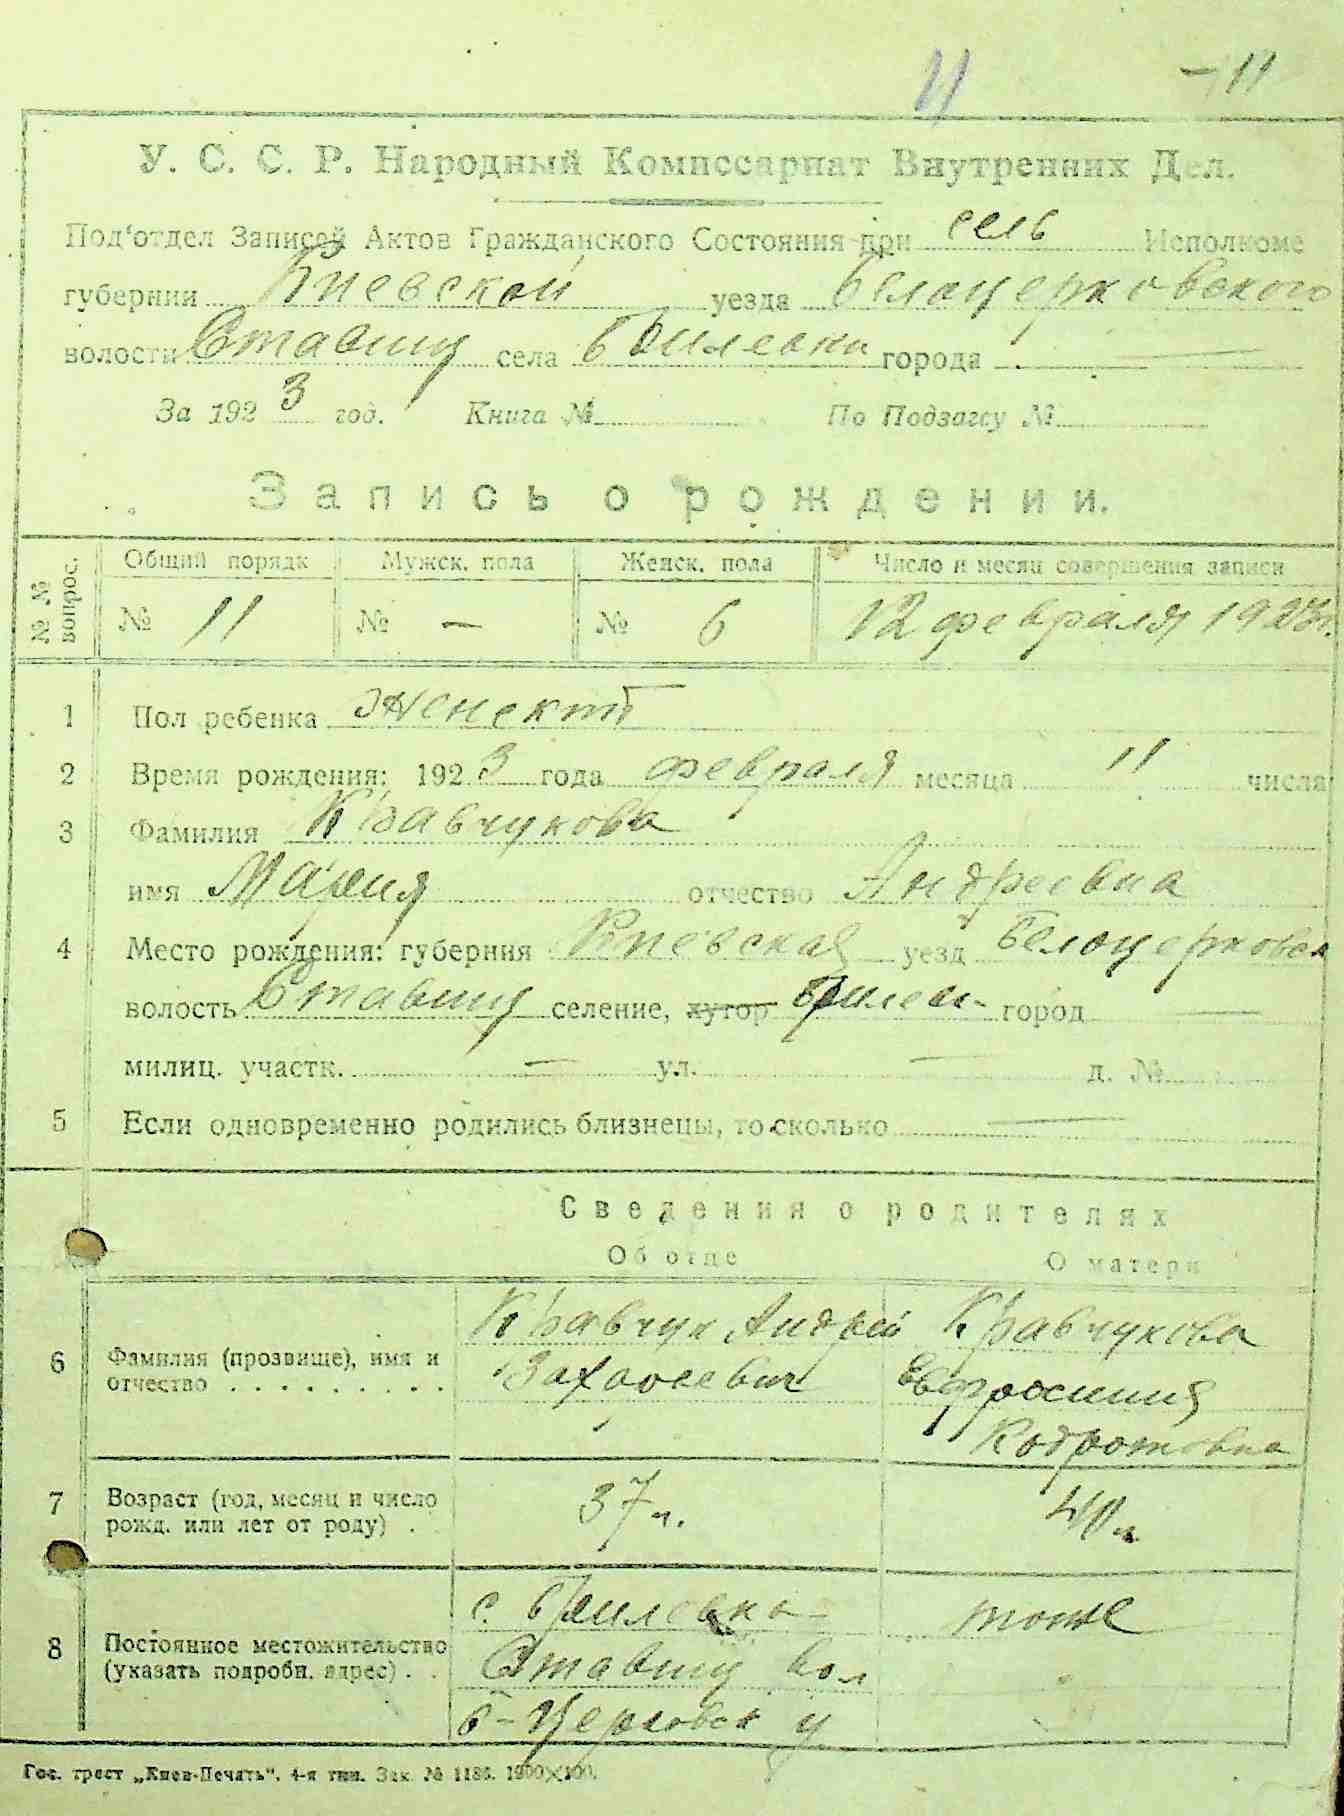 11 – 11
У. С. С. Р. Народный Комиссариат Внутренних Дел.
Под'отдел Записей Актов Гражданского Состояния при сель Исполкоме
губернии Киевской уезда Белоцерковского
волости Ставищ села Брилевки города —
За 1923 год. Книга № По Подзагсу №
Запись о рождении.
№ № вопрос. Общий порядк Мужск. пола Женск. пола Число и месяц совершения записи
№ 11 № — № 6 12 февраля 1923г.
1 Пол ребенка женский
2 Время рождения: 1923 года февраля месяца 11 числа
3 Фамилия Кравчукова
имя Мария отчество Андреевна
4 Место рождения: губерния Киевская уезд Белоцерковск
волость Ставищ селение, хутор Брилев- город —
милиц. участк. — ул. — д. №
5 Если одновременно родились близнецы, то сколько —
Сведения о родителях
Об отце О матери
6 Фамилия (прозвище), имя и отчество . . . . . . . . . .
Кравчук Андрей
Захарьевич
Кравчукова
Евфросиния
Кодротовна
7 Возраст (год, месяц и число рожд. или лет от роду) .
37 л.
40 л.
8 Постоянное местожительство (указать подробн. адрес) . .
с. Брилевка
Ставищ вол
Б-Церковск у
тоже
Гос. трест „Киев-Печать". 4-я тип. Зак. № 1186. 1900×100.